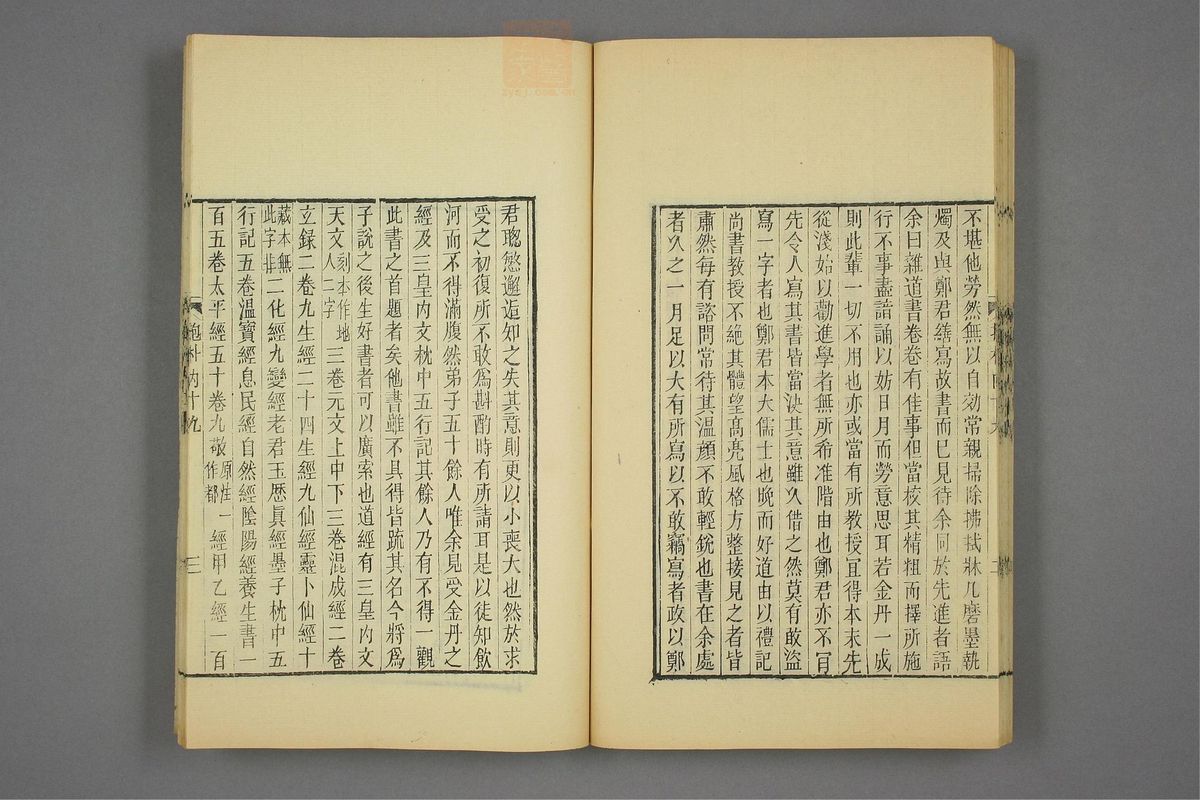 不堪他勞然無以自効常親掃除拂拭牀几磨墨執
燭及與鄭君繕寫故書而已見待余同於先進者語
余曰雜道書卷卷有佳事但當校其精粗而擇所施
行不事盡諳誦以妨日月而勞意思耳若金丹一成
則此輩一切不用也亦或當有所教授宜得本末先
從淺始以勸進學者無所希准階由也鄭君亦不肎
先令人寫其書皆當決其意雖久借之然莫有敢盜
寫一字者也鄭君本大儒士也晚而好道由以禮記
尚書教授不絕其體望髙亮風格方整接見之者皆
肅然每有諮問常待其溫顔不敢輕銳也書在余處
者久之一月足以大有所寫以不敢竊寫者政以鄭
君聰慜邂逅知之失其意則更以小喪大也然於求
受之初復所不敢爲斟酌時有所請耳是以徒知飲
河而不得滿腹然弟子五十餘人唯余見受金丹之
經及三皇内文枕中五行記其餘人乃有不得一觀
此書之首題者矣他書雖不具得皆疏其名今將爲
子說之後生好書者可以廣索也道經有三皇内文
天文人二字刻本作地三卷元文上中下三卷混成經二卷
立録二卷九生經二十四生經九仙經靈卜仙經十
此字非藏本無二化經九變經老君玉歷眞經墨子枕中五
行記五卷溫寶經息民經自然經陰陽經養生書一
百五卷太平經五十卷九敬原注作都一經甲乙經一百
抱朴内十九
三
二